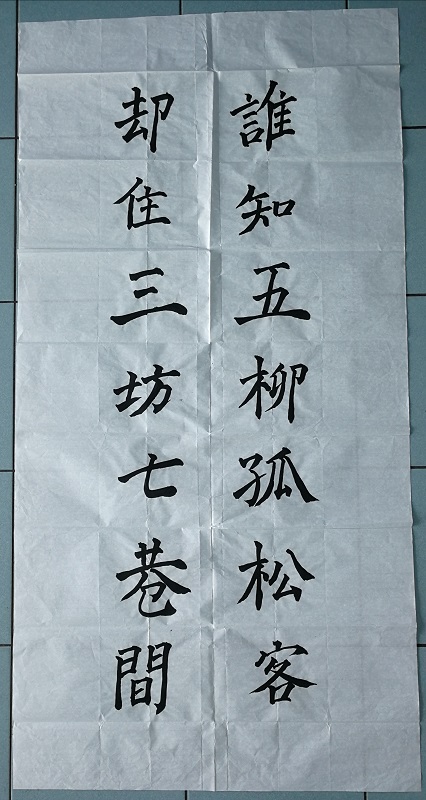 誰知五柳孤松客
却住三坊七巷間